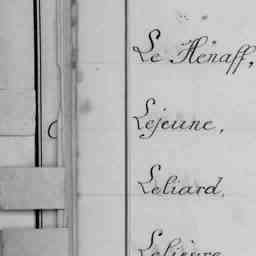 Le Hénaff,
Lejeune,
Leliard,
Lelièvre